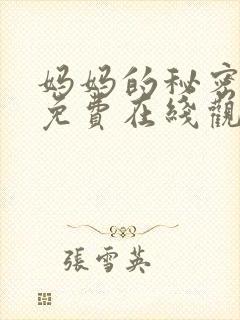 妈妈的秘密
免費在綫觀
張雪英